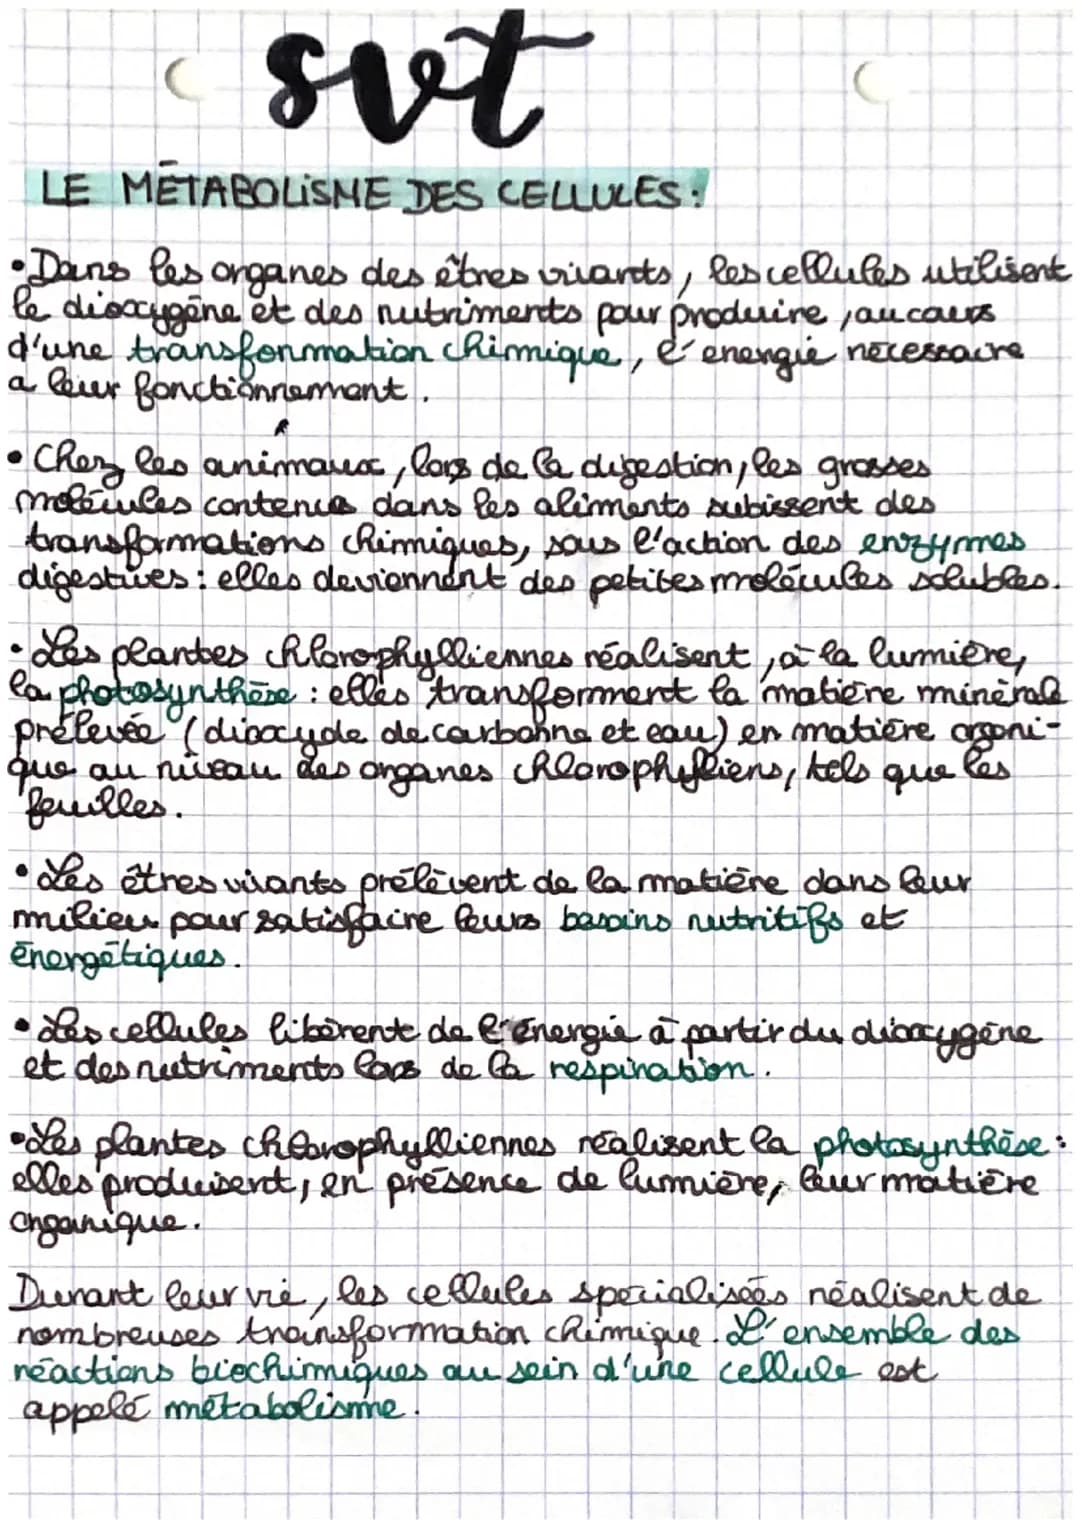 svt
LE MÉTABOLISME DES CELLULES :
• Dans les organes des êtres vivants, les cellules utilisent
le dioxygène et des nutriments pour produire, au cours
d'une transformation chimique, l'énergie nécessaire
a leur fonctionnement.
• Chez les animaux, lors de la digestion, les grosses
molécules contenus dans les aliments subissent des
transformations chimiques, sous l'action des enzymes
digestives : elles deviennent des petites molécules solubles.
• Les plantes chlorophylliennes réalisent, à la lumière,
la photosynthèse : elles transforment la matière minérale
prélevée (dioxyde de carbonne et eau) en matière organi-
que au niveau des organes chlorophylliens, tels que les
feuilles.
• Les êtres vivants prélèvent de la matière dans leur
milieu pour satisfaire leurs besoins nutritifs et
énergétiques.
• Les cellules libèrent de l'énergie à partir du dioxygène
et des nutriments lors de la respiration.
• Les plantes chlorophylliennes réalisent la photosynthèse :
elles produisent, en présence de lumière, leur matière
organique.
Durant leur vie, les cellules spécialisées réalisent de
nombreuses transformation chimique. L'ensemble des
réactions biochimiques au sein d'une cellule est
appelé métabolisme.